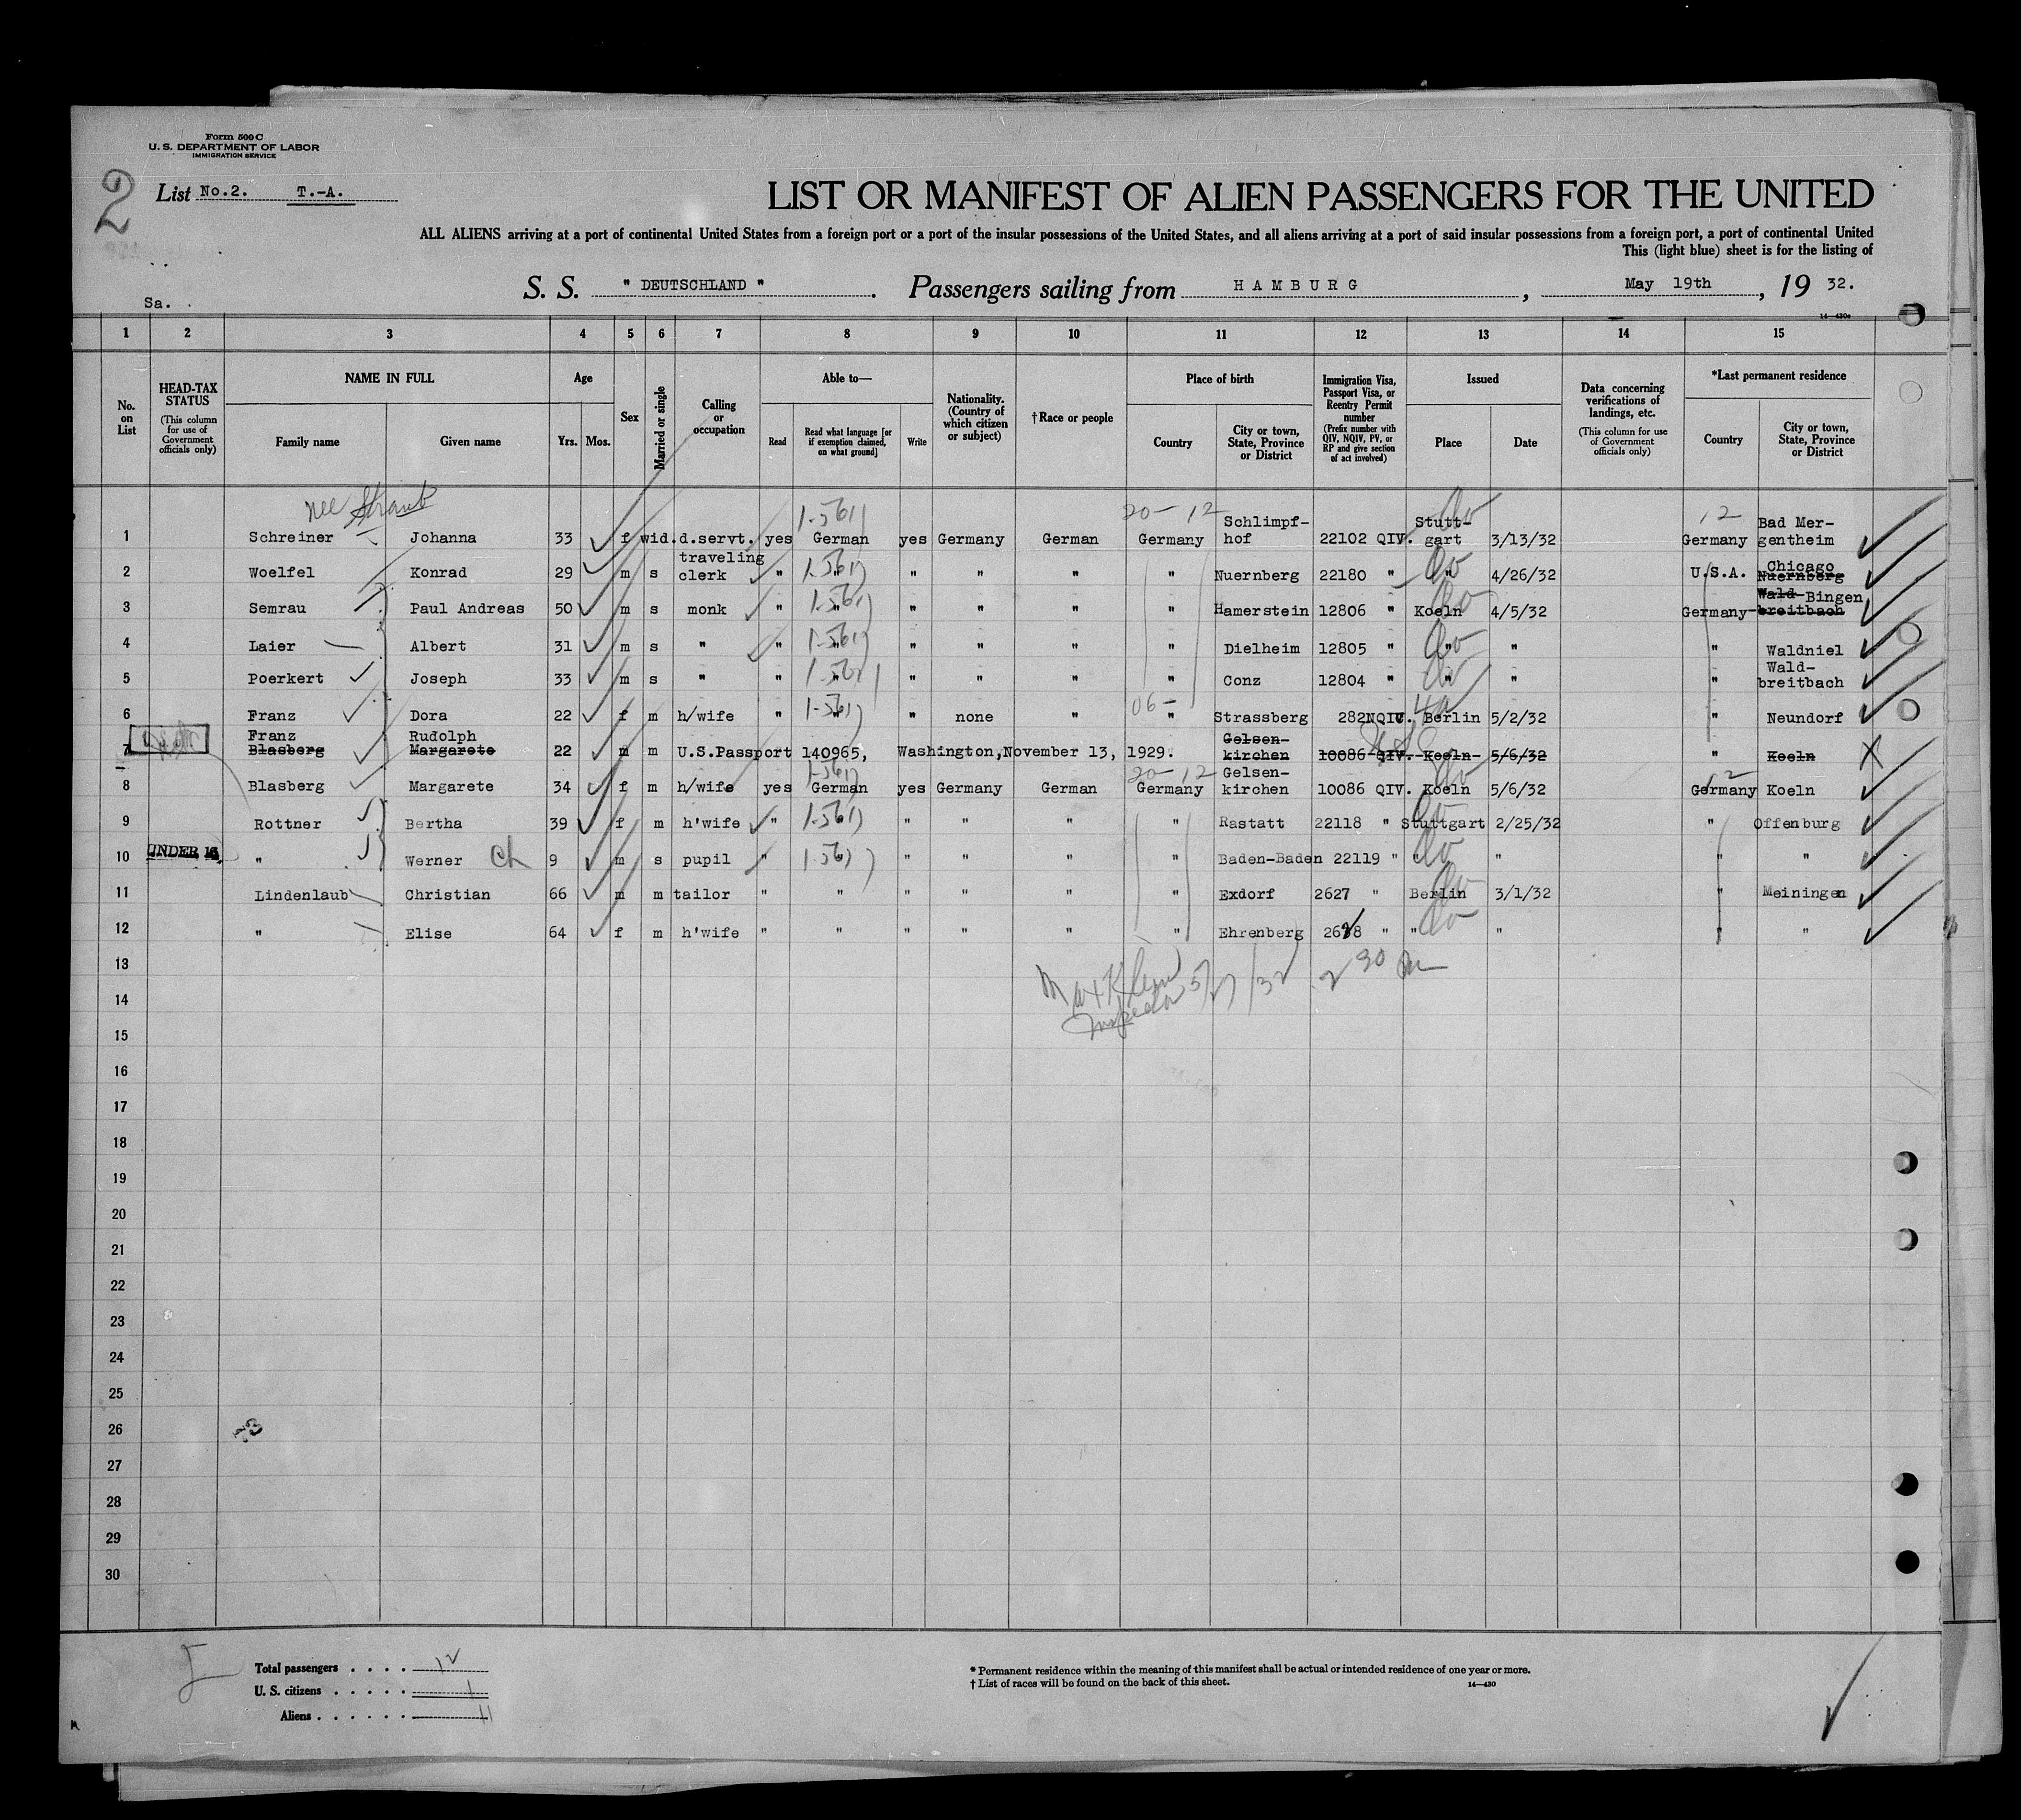 Form 500 C
U. S. DEPARTMENT OF LABOR
IMMIGRATION SERVICE
2
List No.2. T.-A.
LIST OR MANIFEST OF ALIEN PASSENGERS FOR THE UNITED
ALL ALIENS arriving at a port of continental United States from a foreign port or a port of the insular possessions of the United States, and all aliens arriving at a port of said insular possessions from a foreign port, a port of continental United
This (light blue) sheet is for the listing of
Sa.
S. S. " DEUTSCHLAND " . Passengers sailing from HAMBURG , May 19th , 19 32.
14—430c
1 2 3 4 5 6 7 8 9 10 11 12 13 14 15
No. on List
HEAD-TAX STATUS (This column for use of Government officials only)
NAME IN FULL Family name Given name
Age Yrs. Mos.
Sex
Married or single
Calling or occupation
Able to— Read Read what language [or if exemption claimed, on what ground] Write
Nationality. (Country of which citizen or subject)
†Race or people
Place of birth Country City or town, State, Province or District
Immigration Visa, Passport Visa, or Reentry Permit number (Prefix number with QIV, NQIV, PV, or RP and give section of act involved)
Issued Place Date
Data concerning verifications of landings, etc. (This column for use of Government officials only)
*Last permanent residence Country City or town, State, Province or District
nee Straub
1 Schreiner Johanna 33 f wid. d.servt. yes German yes Germany German Germany Schlimpf-hof 22102 QIV. Stutt-gart 3/13/32 Germany Bad Mer-gentheim
2 Woelfel Konrad 29 m s traveling clerk " " " " " " Nuernberg 22180 " " 4/26/32 U.S.A. Chicago Nuernberg
3 Semrau Paul Andreas 50 m s monk " " " " " " Hamerstein 12806 " Koeln 4/5/32 Germany- Wald-Bingen breitbach
4 Laier Albert 31 m s " " " " " " " Dielheim 12805 " " " " Waldniel
5 Poerkert Joseph 33 m s " " " " " " " Conz 12804 " " " " Wald-breitbach
6 Franz Dora 22 f m h/wife " " " none " " Strassberg 282NQIV. Berlin 5/2/32 " Neundorf
Franz Rudolph
7 Blasberg Margarete 22 m m U.S.Passport 140965, Washington,November 13, 1929. Gelsen-kirchen 10086 QIV. Koeln- 5/6/32 " Koeln
8 Blasberg Margarete 34 f m h/wife yes German yes Germany German Germany Gelsen-kirchen 10086 QIV. Koeln 5/6/32 Germany Koeln
9 Rottner Bertha 39 f m h'wife " " " " " " Rastatt 22118 " Stuttgart 2/25/32 " Offenburg
10 UNDER 16 " Werner Ch 9 m s pupil " " " " " Baden-Baden 22119 " " " " "
11 Lindenlaub Christian 66 m m tailor " " " " " " Exdorf 2627 " Berlin 3/1/32 " Meiningen
12 " Elise 64 f m h'wife " " " " " " Ehrenberg 2628 " " " " "
13
Max Klein 5/27/32 2 30 Pm
Inspector
14
15
16
17
18
19
20
21
22
23
24
25
26
27
28
29
30
Total passengers . . . . 12
U. S. citizens . . . . . 1
Aliens . . . . . . 11
* Permanent residence within the meaning of this manifest shall be actual or intended residence of one year or more.
† List of races will be found on the back of this sheet.
14—430